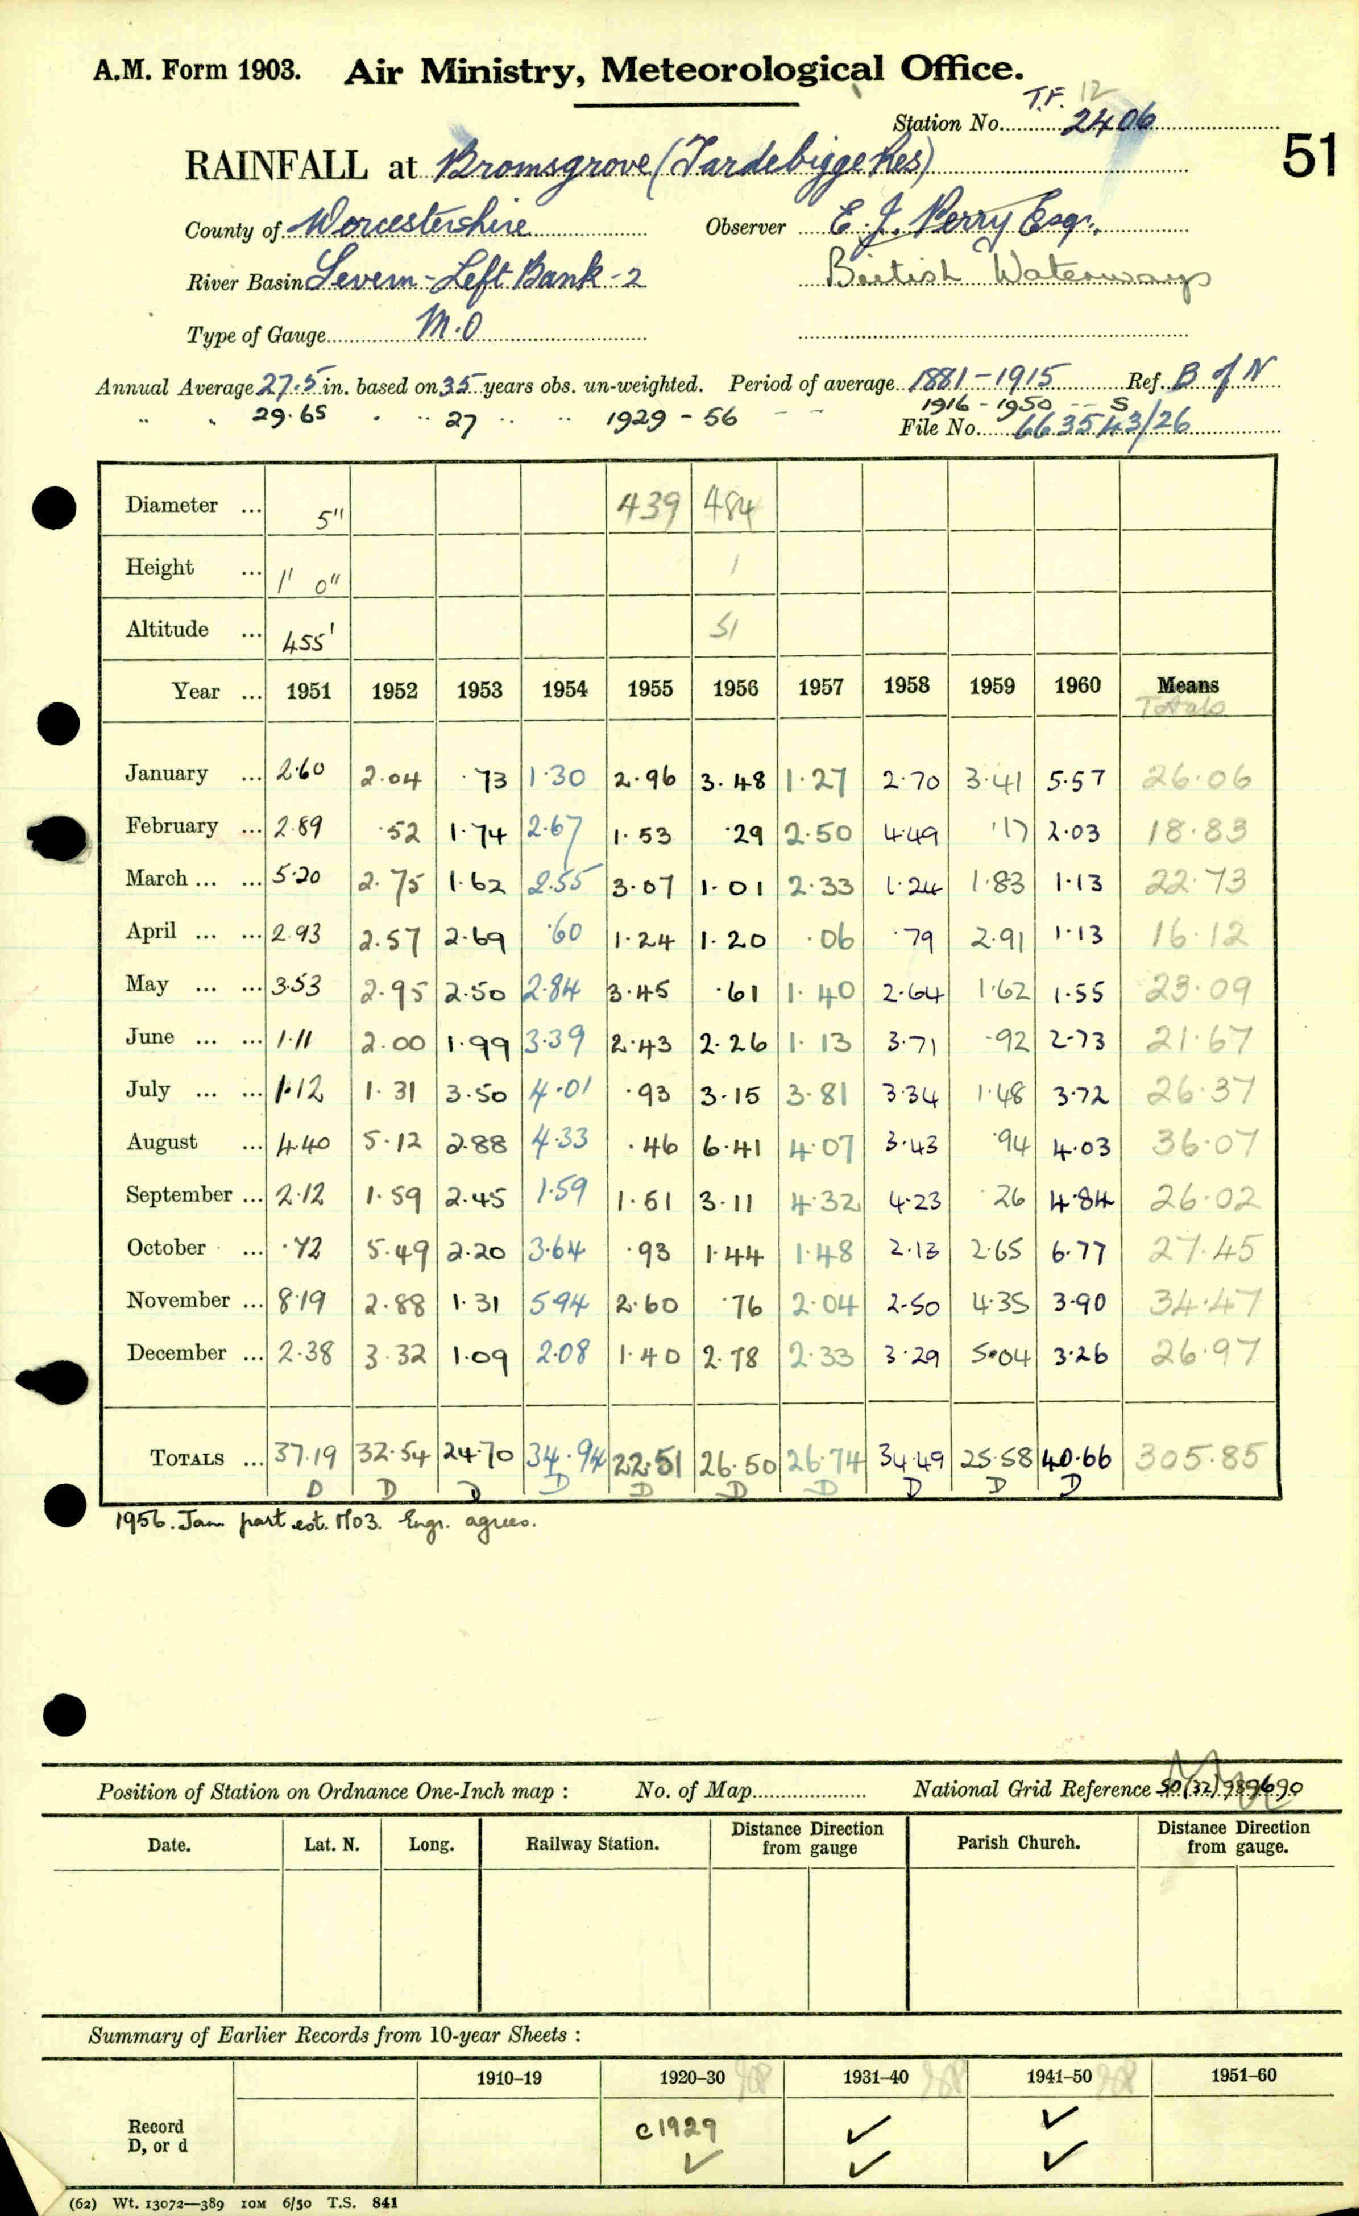 A.M. Form 1903. Air Ministry, Meteorological Office.
T.F. 12
Station No. 2406
51
RAINFALL at Bromsgrove (Tardebigge Res)
County of Worcestershire Observer E. J. Perry Esq.
River Basin Severn - Left Bank - 2 British Waterways
Type of Gauge M.O
Annual Average 27.5 in. based on 35 years obs. un-weighted. Period of average 1881-1915 Ref. B of N
" " 29.65 " " 27 " " 1929-56 - - 1916-1950 -- S
File No. 663543/26
Diameter ... 5" 439 484
Height ... 1' 0" 1
Altitude ... 455' 51
Year ... 1951 1952 1953 1954 1955 1956 1957 1958 1959 1960 Means
Totals
January ... 2.60 2.04 .73 1.30 2.96 3.48 1.27 2.70 3.41 5.57 26.06
February ... 2.89 .52 1.74 2.67 1.53 .29 2.50 4.49 .17 2.03 18.83
March ... ... 5.20 2.75 1.62 2.55 3.07 1.01 2.33 1.24 1.83 1.13 22.73
April ... ... 2.93 2.57 2.69 .60 1.24 1.20 .06 .79 2.91 1.13 16.12
May ... ... 3.53 2.95 2.50 2.84 3.45 .61 1.40 2.64 1.62 1.55 23.09
June ... ... 1.11 2.00 1.99 3.39 2.43 2.26 1.13 3.71 .92 2.73 21.67
July ... ... 1.12 1.31 3.50 4.01 .93 3.15 3.81 3.34 1.48 3.72 26.37
August ... 4.40 5.12 2.88 4.33 .46 6.41 4.07 3.43 .94 4.03 36.07
September ... 2.12 1.59 2.45 1.59 1.51 3.11 4.32 4.23 .26 4.84 26.02
October ... .72 5.49 2.20 3.64 .93 1.44 1.48 2.13 2.65 6.77 27.45
November ... 8.19 2.88 1.31 5.94 2.60 .76 2.04 2.50 4.35 3.90 34.47
December ... 2.38 3.32 1.09 2.08 1.40 2.78 2.33 3.29 5.04 3.26 26.97
TOTALS ... 37.19 32.54 24.70 34.94 22.51 26.50 26.74 34.49 25.58 40.66 305.85
D D D D D D D D D D
1956. Jan part est. MO3. Engr. agrees.
Position of Station on Ordnance One-Inch map : No. of Map National Grid Reference 50 (32) 989690
Date. Lat. N. Long. Railway Station. Distance Direction from gauge Parish Church. Distance Direction from gauge.
Summary of Earlier Records from 10-year Sheets :
1910–19 1920–30 1931–40 1941–50 1951–60
Record D, or d c1929 ✓ ✓
✓ ✓ ✓
(62) Wt. 13072—389 10M 6/50 T.S. 841